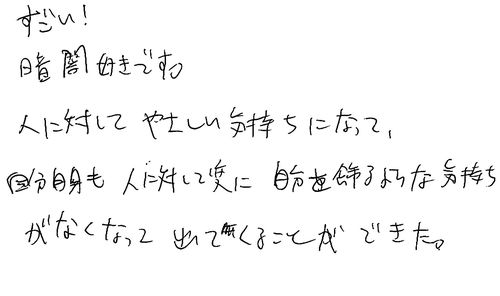 すごい!
暗闇好きです。
人に対して やさしい気持ちになって、
自分自身も 人に対して変に 自分を飾るような気持ち
がなくなって 出てくることができた。